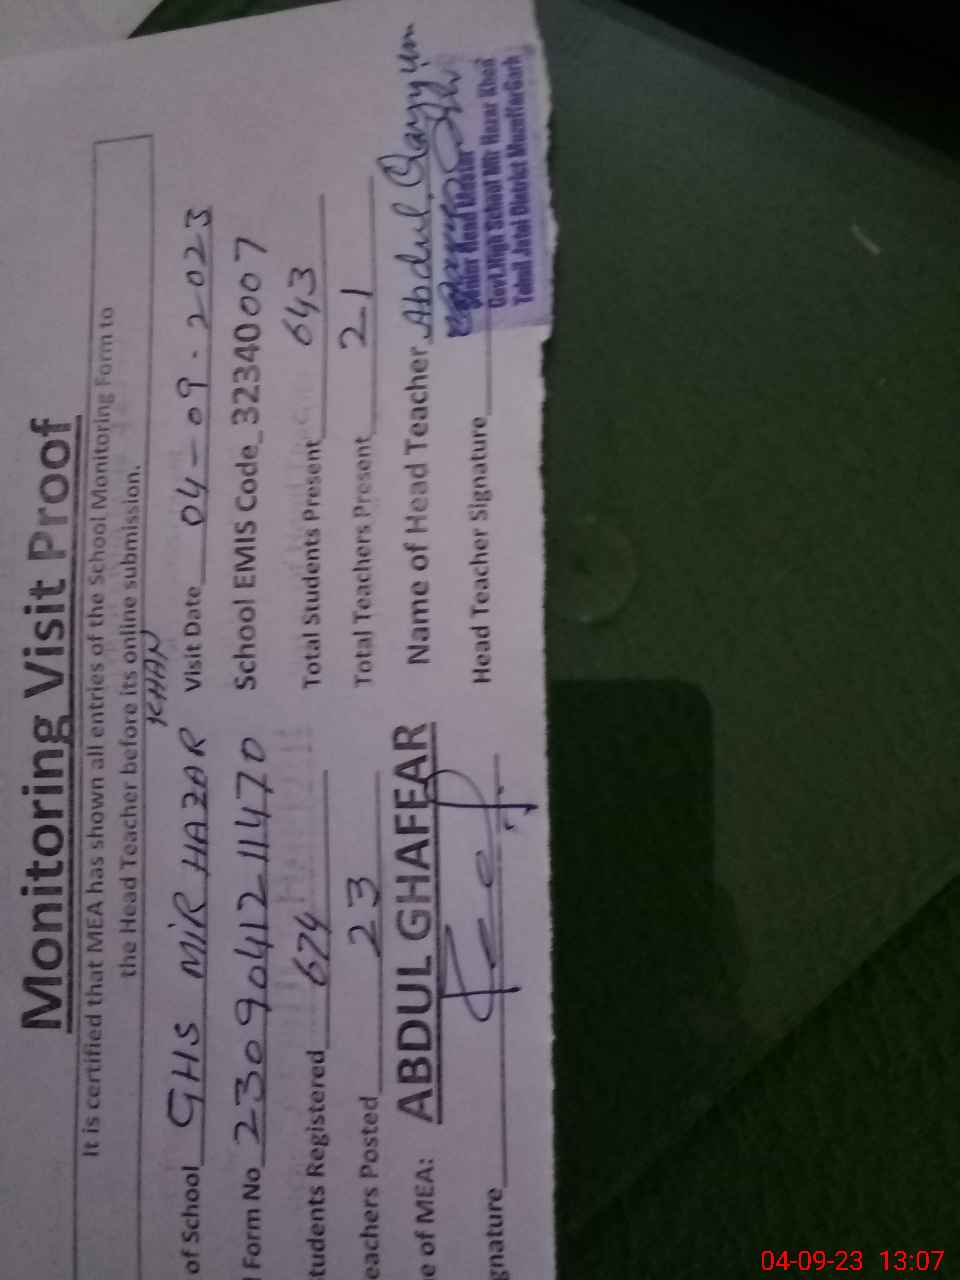 Monitoring Visit Proof
It is certified that MEA has shown all entries of the School Monitoring Form to
the Head Teacher before its online submission.
of School GHS MIR HAZAR KHAN Visit Date 04-09-2023
Form No 2309041211470 School EMIS Code 32340007
tudents Registered 674 Total Students Present 643
eachers Posted 23 Total Teachers Present 21
e of MEA: ABDUL GHAFFAR Name of Head Teacher Abdul Qayyum
gnature Head Teacher Signature
Senior Head Master
Govt.High School Mir Hazar Khan
Tehsil Jatoi District MuzaffarGarh
04-09-23 13:07